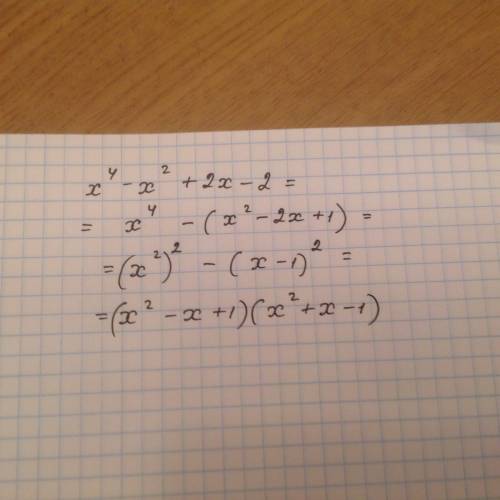 x⁴ - x² + 2x - 2 =
= x⁴ - (x² - 2x + 1) =
= (x²)² - (x - 1)² =
= (x² - x + 1)(x² + x - 1)